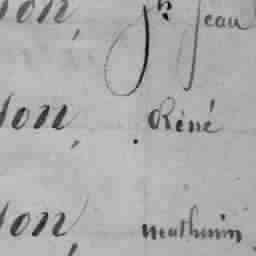 ion, Jh Jean
ton, Réné
ton, mathurin